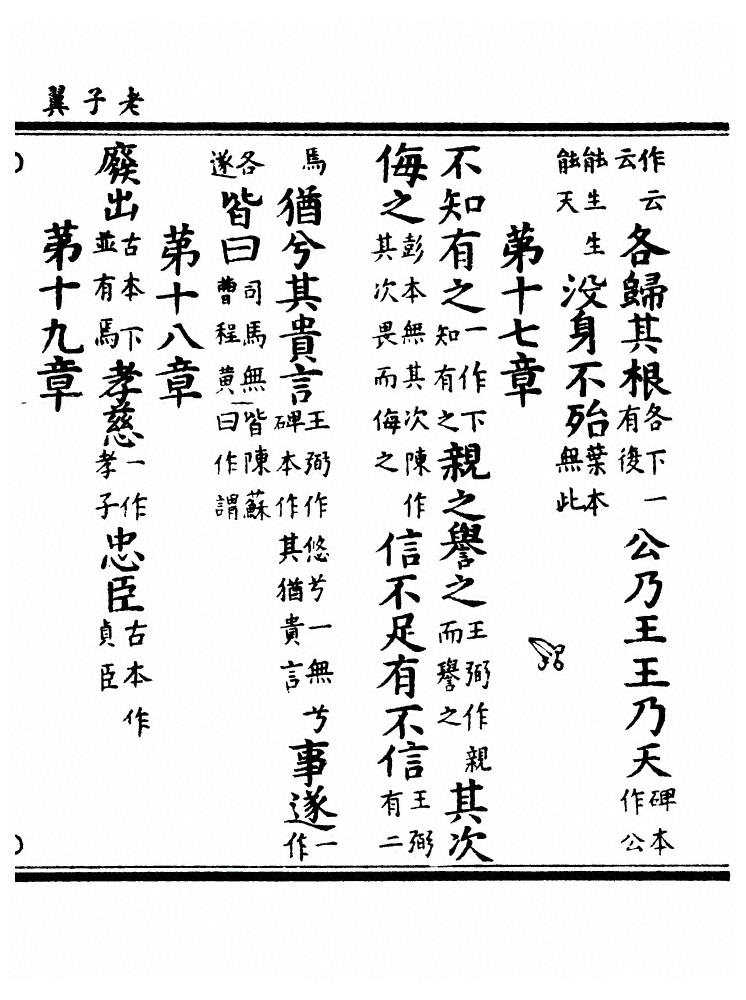 老子翼
作云云各歸其根各下一有復公乃王王乃天碑本作公
能生生能天没身不殆葉本無此
第十七章
不知有之一作下知有之親之譽之王弼作親而譽之其次
侮之彭本無其次陳作其次畏而侮之信不足有不信王弼有二
焉猶兮其貴言王弼作悠兮一無兮碑本作其猶貴言事遂一作
各遂皆曰司馬無皆陳蘇曹程黄曰作謂
第十八章
廢出古本下並有焉孝慈一作孝子忠臣古本作貞臣
第十九章